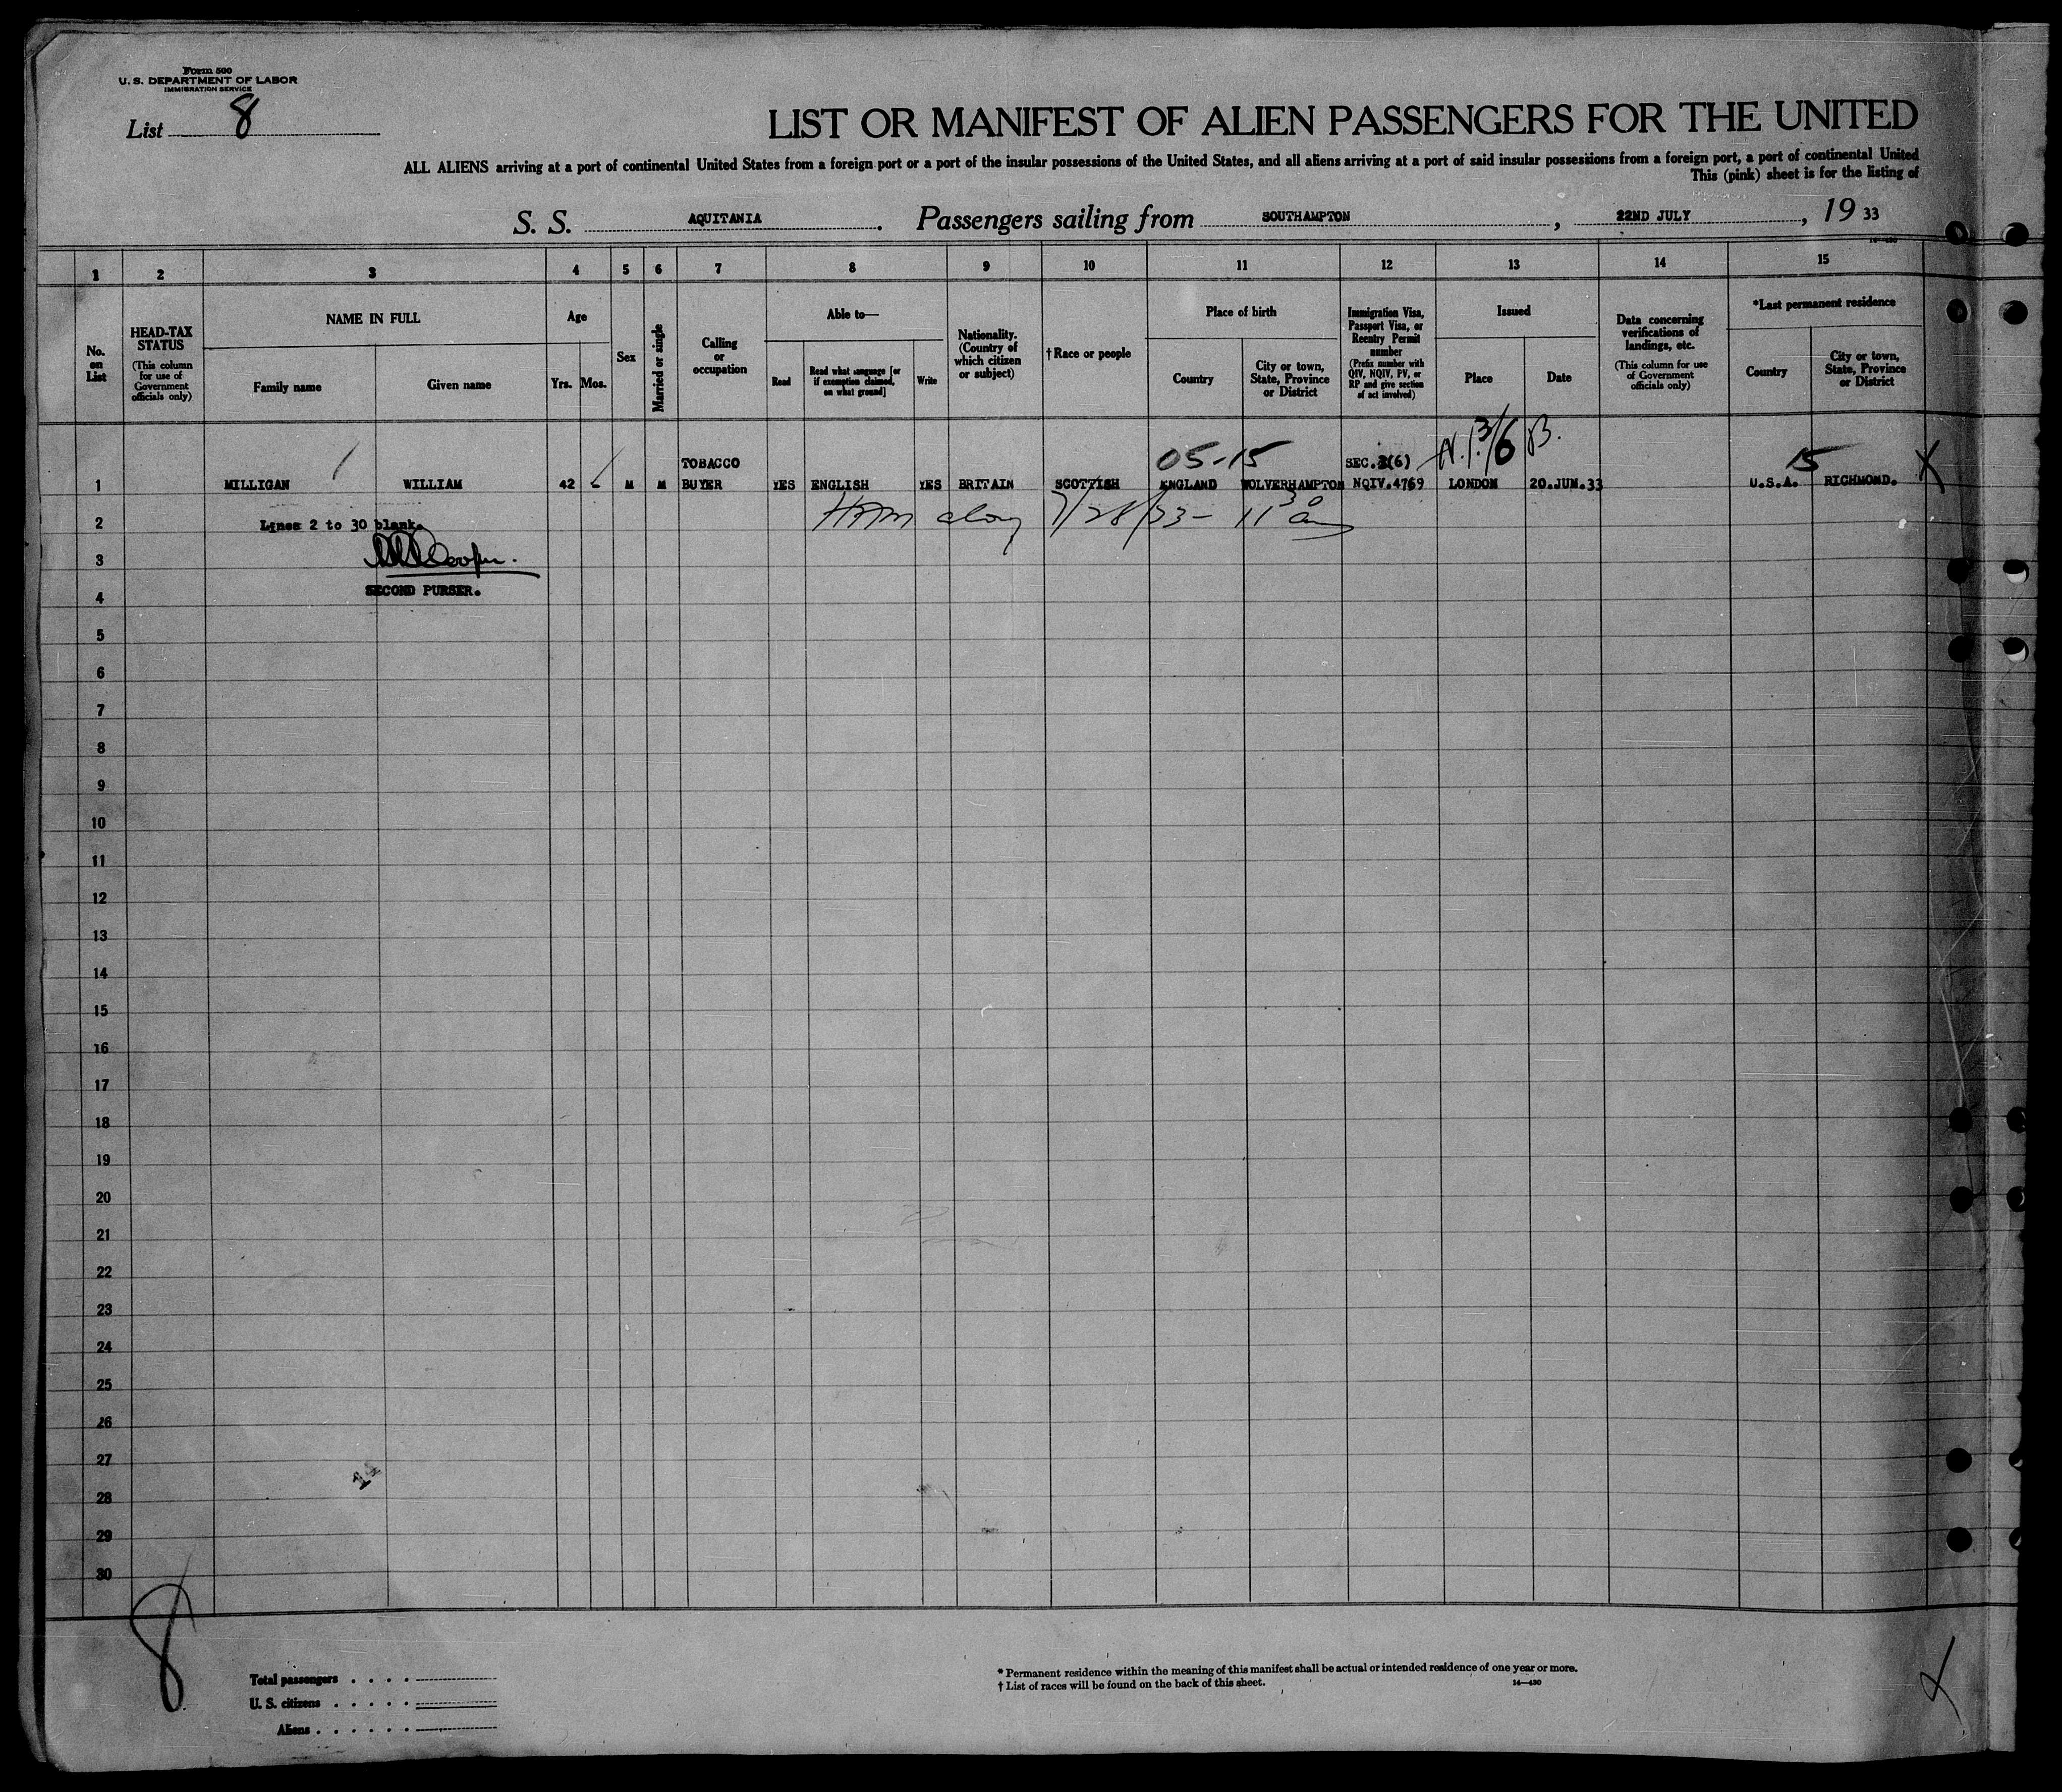 Form 500
U. S. DEPARTMENT OF LABOR
IMMIGRATION SERVICE
List 8
LIST OR MANIFEST OF ALIEN PASSENGERS FOR THE UNITED
ALL ALIENS arriving at a port of continental United States from a foreign port or a port of the insular possessions of the United States, and all aliens arriving at a port of said insular possessions from a foreign port, a port of continental United
This (pink) sheet is for the listing of
S. S. AQUITANIA. Passengers sailing from SOUTHAMPTON, 22ND JULY, 19 33
1 2 3 4 5 6 7 8 9 10 11 12 13 14 15
No. on List
HEAD-TAX STATUS
(This column for use of Government officials only)
NAME IN FULL
Family name
Given name
Age
Yrs. Mos.
Sex
Married or single
Calling or occupation
Able to—
Read
Read what language [or if exemption claimed, on what ground]
Write
Nationality. (Country of which citizen or subject)
† Race or people
Place of birth
Country
City or town, State, Province or District
Immigration Visa, Passport Visa, or Reentry Permit number
(Prefix number with QIV, NQIV, PV, or RP and give section of act involved)
Issued
Place
Date
Data concerning verifications of landings, etc.
(This column for use of Government officials only)
*Last permanent residence
Country
City or town, State, Province or District
TOBACCO 05-15 SEC.3(6) 15
1 MILLIGAN WILLIAM 42 - M M BUYER YES ENGLISH YES BRITAIN SCOTTISH ENGLAND WOLVERHAMPTON NQIV.4769 LONDON 20.JUN.33 U.S.A. RICHMOND. X
2 Lines 2 to 30 blank. 7/28/33 - 11
3
4 SECOND PURSER.
5
6
7
8
9
10
11
12
13
14
15
16
17
18
19
20
21
22
23
24
25
26
27
28
29
30
8
Total passengers . . . .
U. S. citizens . . . . .
Aliens . . . . . .
* Permanent residence within the meaning of this manifest shall be actual or intended residence of one year or more.
† List of races will be found on the back of this sheet.
14—430
X